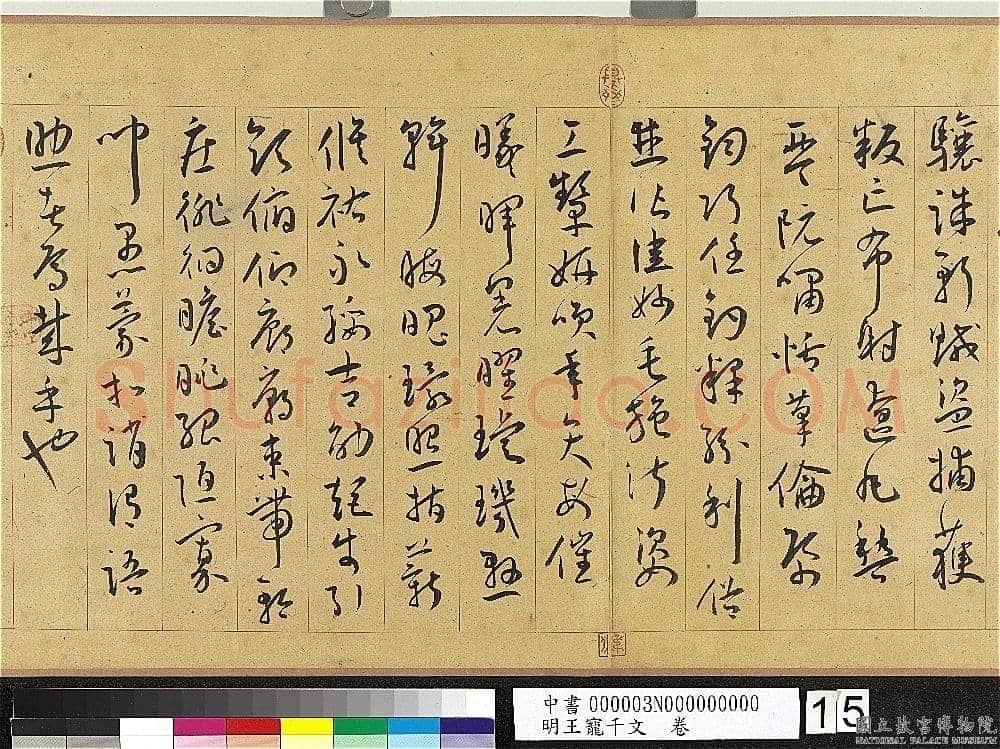 驤誅斬賊盜捕獲
叛亡布射遼丸嵇
琴阮嘯恬筆倫紙
鈞巧任釣釋紛利俗
並皆佳妙毛施淑姿
工顰妍笑年矢每催
曦暉晃曜璇璣懸
斡晦魄環照指薪
修祜永綏吉劭矩步引
領俯仰廊廟束帶矜
莊徘徊瞻眺孤陋寡
聞愚蒙等誚謂語
助者焉哉乎也
Shufazidao.COM
中書 000003N000000000
明王寵千文 卷
15
國立故宮博物院
NATIONAL PALACE MUSEUM